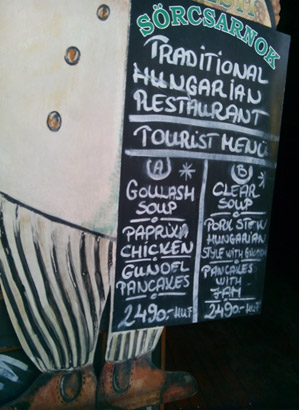 SÖRCSARNOK
TRADITIONAL
HUNGARIAN
RESTAURANT
TOURIST MENÜ
A
GOULASH
SOUP
PAPRIKA
CHICKEN
GUNDEL
PANCAKES
2490.-HUF
B
CLEAR
SOUP
PORK STEW
HUNGARIAN
STYLE WITH
PANCAKES
WITH
JAM
2490.-HUF